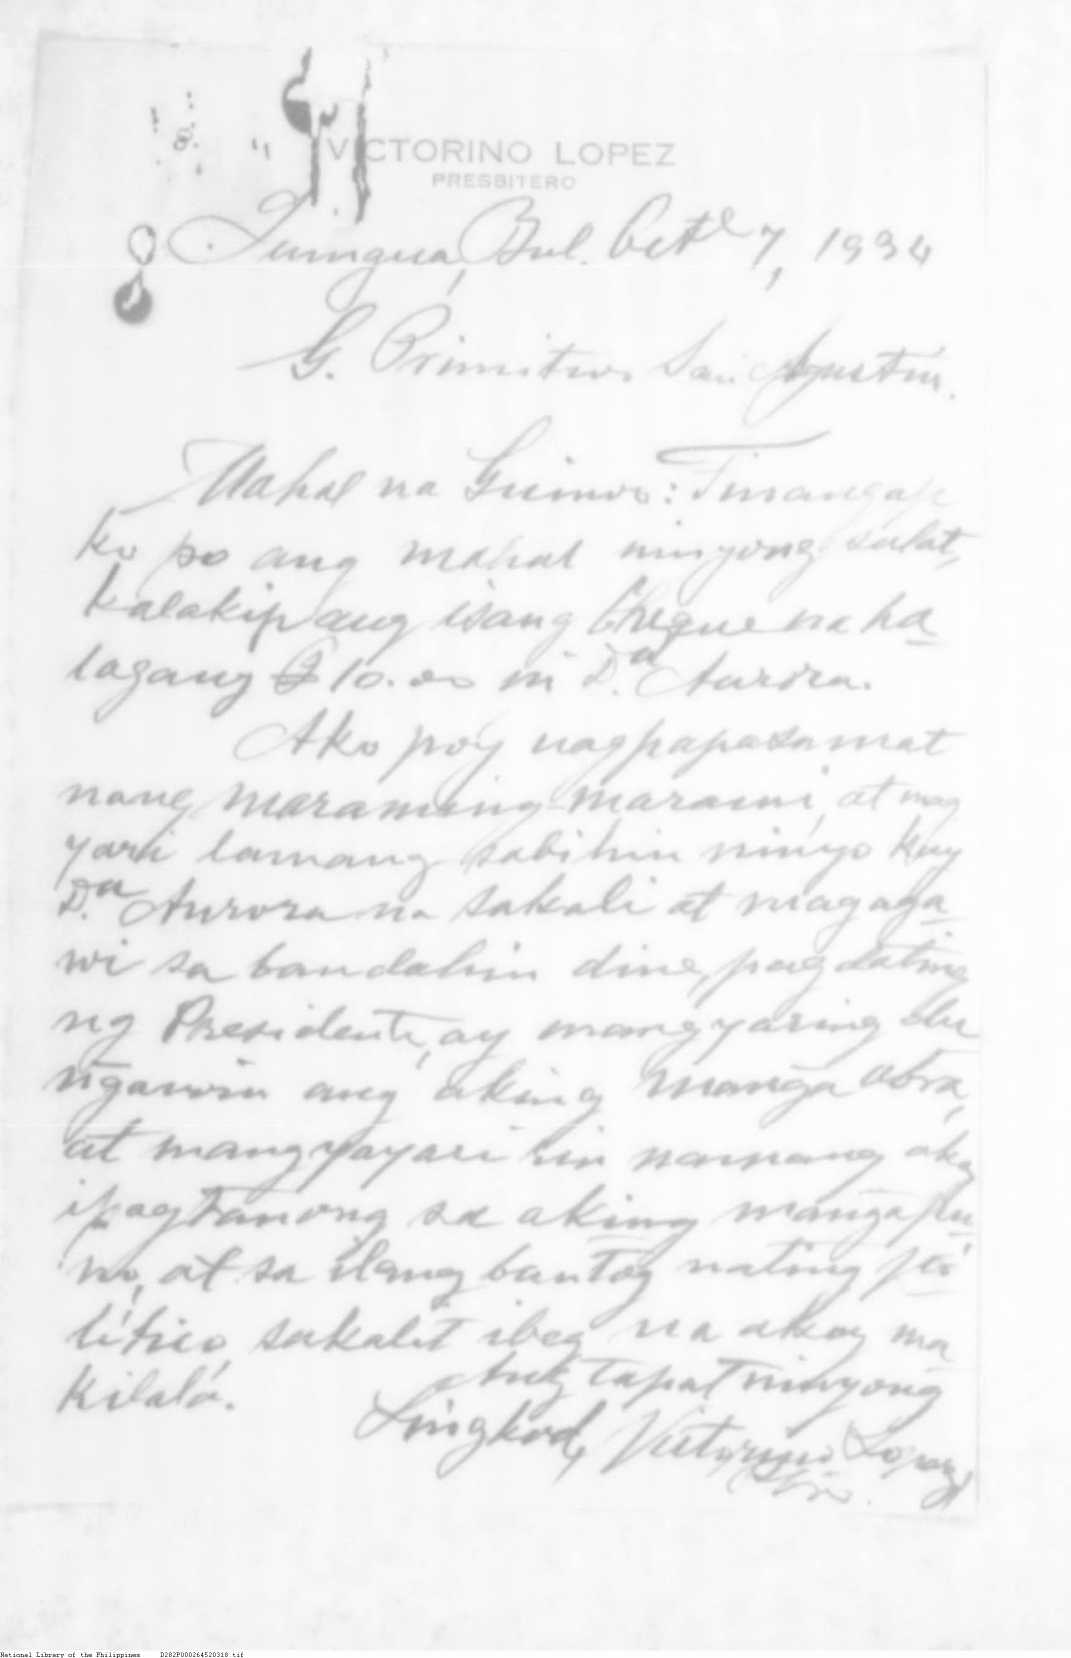 VICTORINO LOPEZ
PRESBITERO
Bul. Octe 7, 1934
G. Primitivo San Agustin.
Mahal na Guinoo: Tinangap
ko po ang mahal ninyong sulat,
kalakip ang isang Cheque na ha
lagang ₱10.00 ni D.a Aurora.
Ako po'y nagpapasamat
nang maraming-marami, at mag
yari lamang sabihin ninyo kay
D.a Aurora na sakali at magaga
wi sa bandahin dine, pag dating
ng Presidente, ay mangyaring du
ngawin ang aking manga obra,
at mangyayari rin namang ako'y
ipagtanong sa aking manga pu
no, at sa ilang bantog nating po
litico, sakali't ibeg na ako'y ma
kilala.
Ang tapat ninyong
Lingkod, Victorino Lopez
National Library of the Philippines D282P000264520318.tif